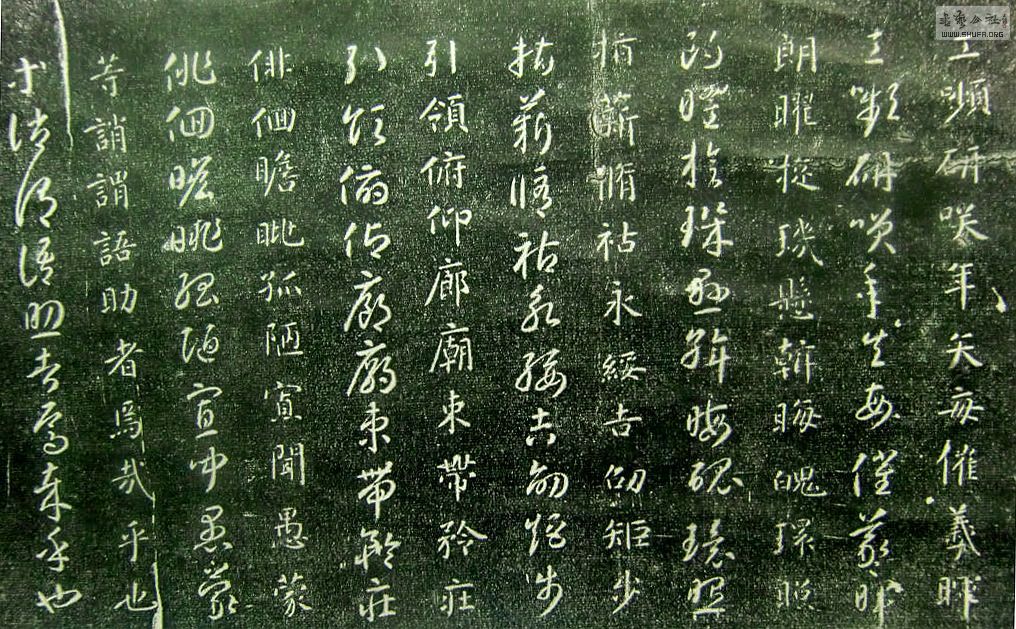 書藝公社
WWW.SHUFA.ORG
工嚬研咲年矢每催羲暉
工嚬研咲年矢每催羲暉
朗曜旋璣懸斡晦魄環照
朗曜旋璣懸斡晦魄環照
指薪脩祜永綏吉劭矩步
指薪脩祜永綏吉劭矩步
引領俯仰廊廟束帶矜莊
引領俯仰廊廟束帶矜莊
俳佪瞻眺孤陋寡聞愚蒙
俳佪瞻眺孤陋寡聞愚蒙
等誚謂語助者焉哉乎也
等誚謂語助者焉哉乎也